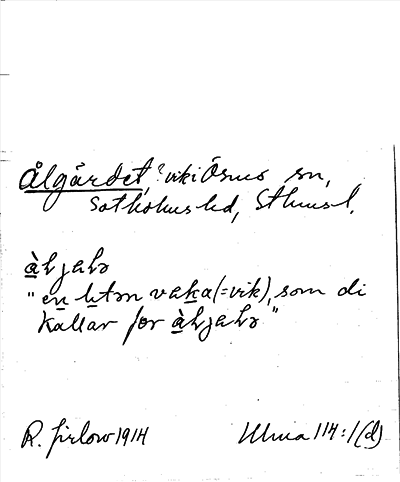 Ålgärdet, ? vik i Ösmo sn,
Sotholms hd, Sthms l.
àljalə
"en litən vaka (=vik), som di
kallar för àljalə."
R. Pirlow 1914
Ulma 114:1 (d)